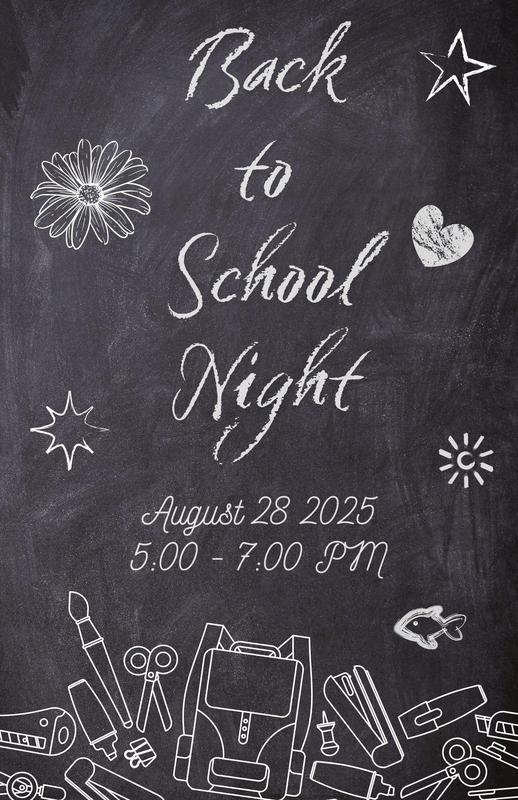 Back
to
School
Night
August 28 2025
5:00 - 7:00 PM